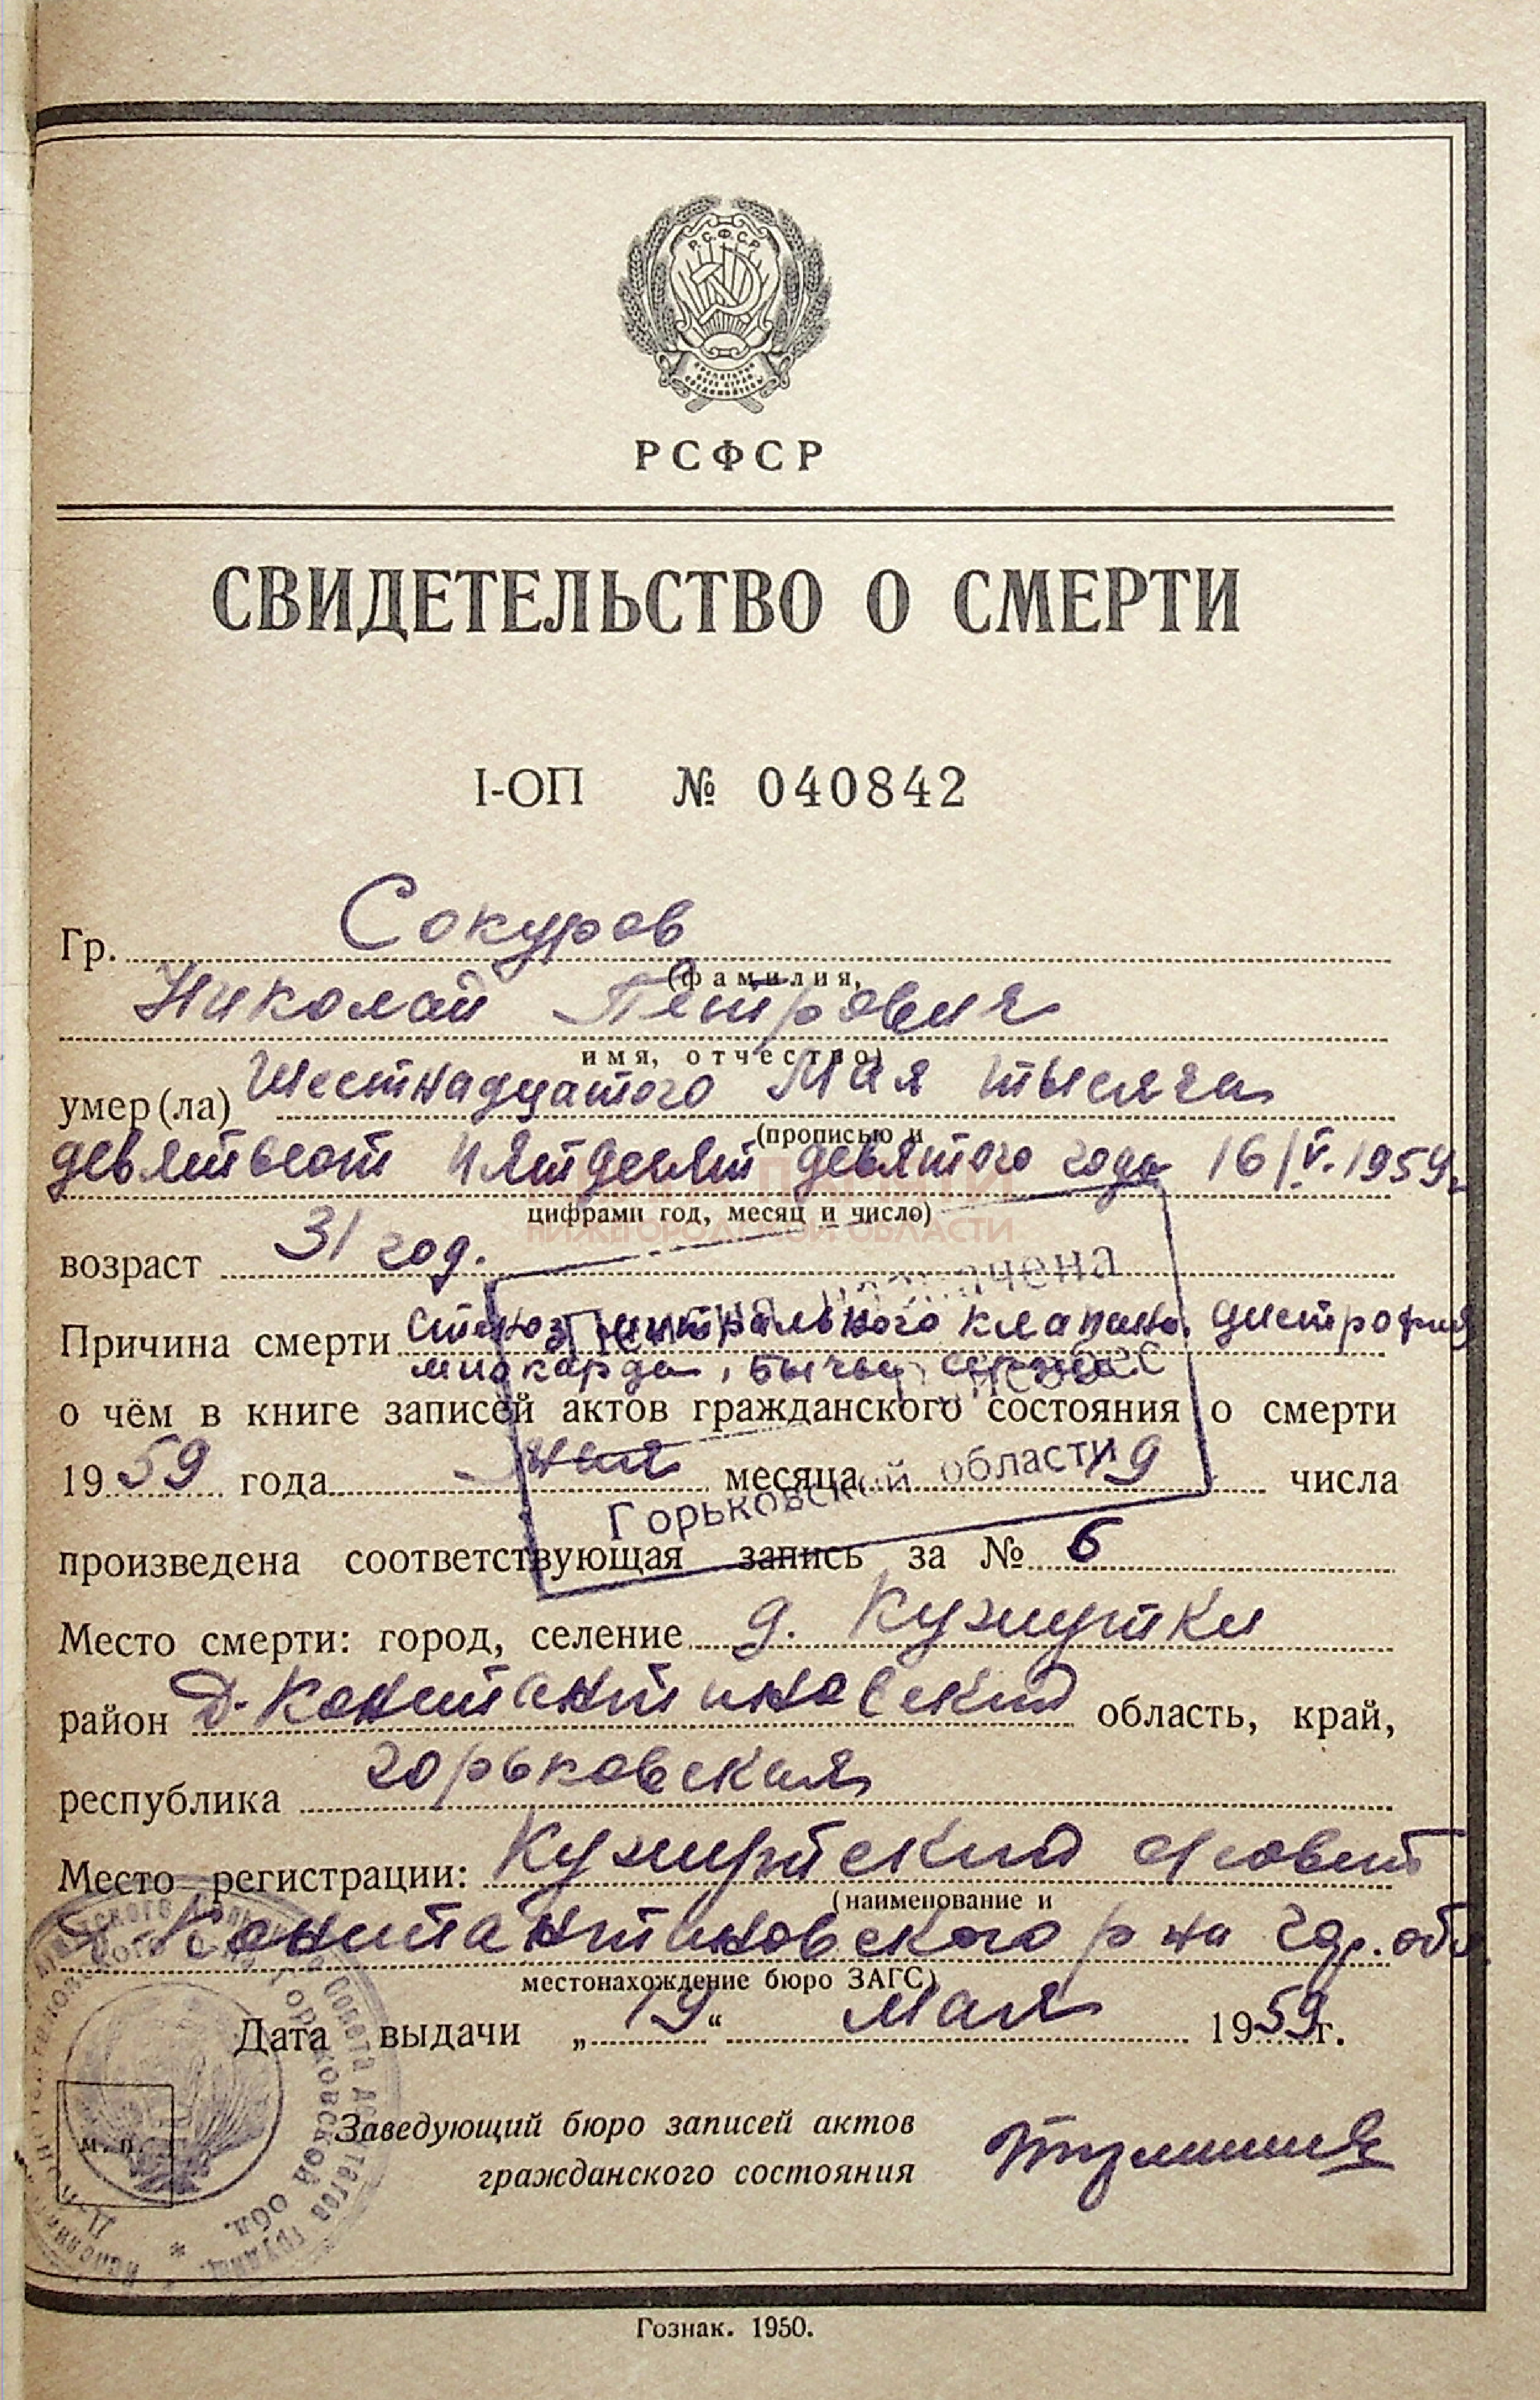 РСФСР
РСФСР
СВИДЕТЕЛЬСТВО О СМЕРТИ
I-ОП № 040842
Гр. Сокуров
(фамилия,
Николай Петрович
имя, отчество)
умер(ла) Шестнадцатого Мая тысяча
(прописью и
девятьсот пятдесят девятого года 16/V. 1959г
цифрами год, месяц и число)
НИЖЕГОРОДСКОЙ ОБЛАСТИ
возраст 31 год.
Причина смерти стеноз митрального клапана, дистрофия
миокарда, бычье сердце
о чём в книге записей актов гражданского состояния о смерти
1959 года мая месяца 19 числа
Горьковской области
произведена соответствующая запись за № 6
Место смерти: город, селение д. Кужутки
район Д-Константиновский область, край,
республика горьковская
Место регистрации: Кужутский с/совет
(наименование и
Д-Константиновского р-на Гор. обл
местонахождение бюро ЗАГС)
Дата выдачи „19“ Мая 1959г.
Заведующий бюро записей актов
гражданского состояния
м. п.
Горьковской обл.
Гознак. 1950.